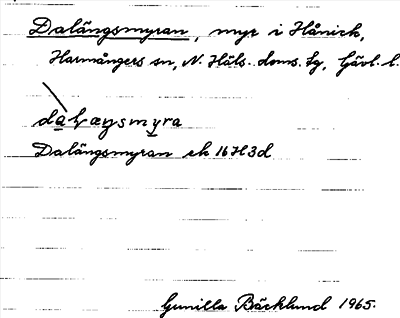 Dalängsmyran, myr i Hånick,
Harmångers sn, N. Häls. doms. sg, Gävl. l.
Dalängsmyran ek 16H3d
Gunilla Bäcklund 1965.